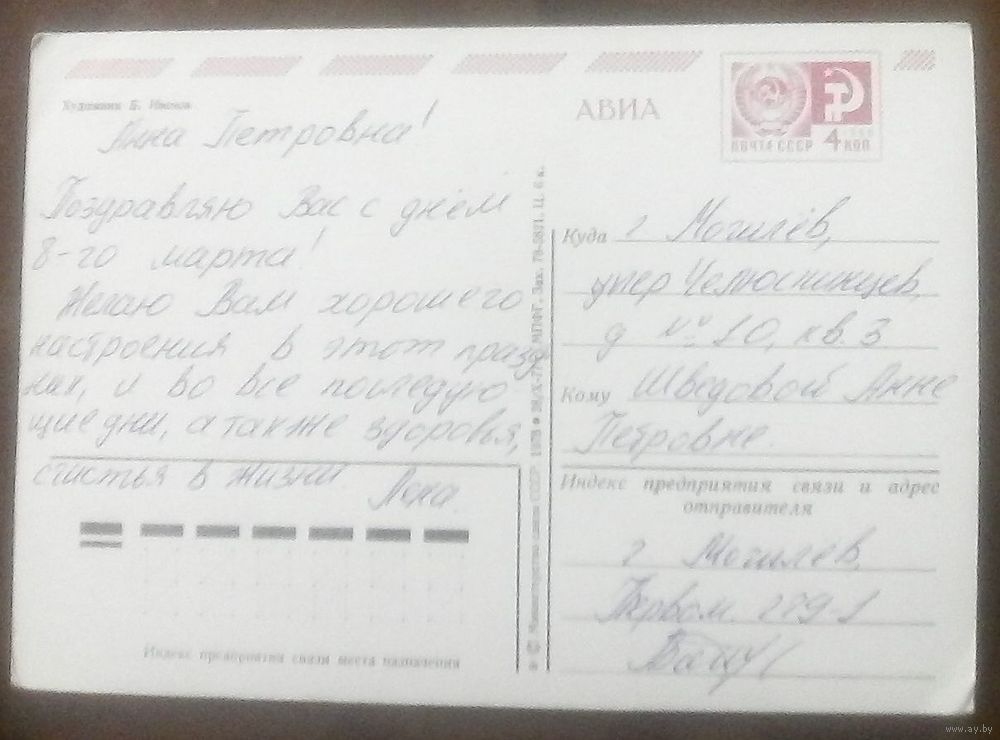 Художник Б.
Анна Петровна!
Поздравляю Вас с днём
8-го марта!
Желаю Вам хорошего
настроения в этот празд
ник, и во все последую-
щие дни, а также здоровья,
счастья в жизни. Лена.
Индекс предприятия связи места назначения
© Министерство связи СССР 1978
АВИА
ПОЧТА СССР 4 КОП
Куда г Могилёв,
Челюскинцев,
д № 10, кв. 3
Кому Шведовой Анне
Петровне.
Индекс предприятия связи и адрес
отправителя
г Могилёв,
Первом.
www.ay.by